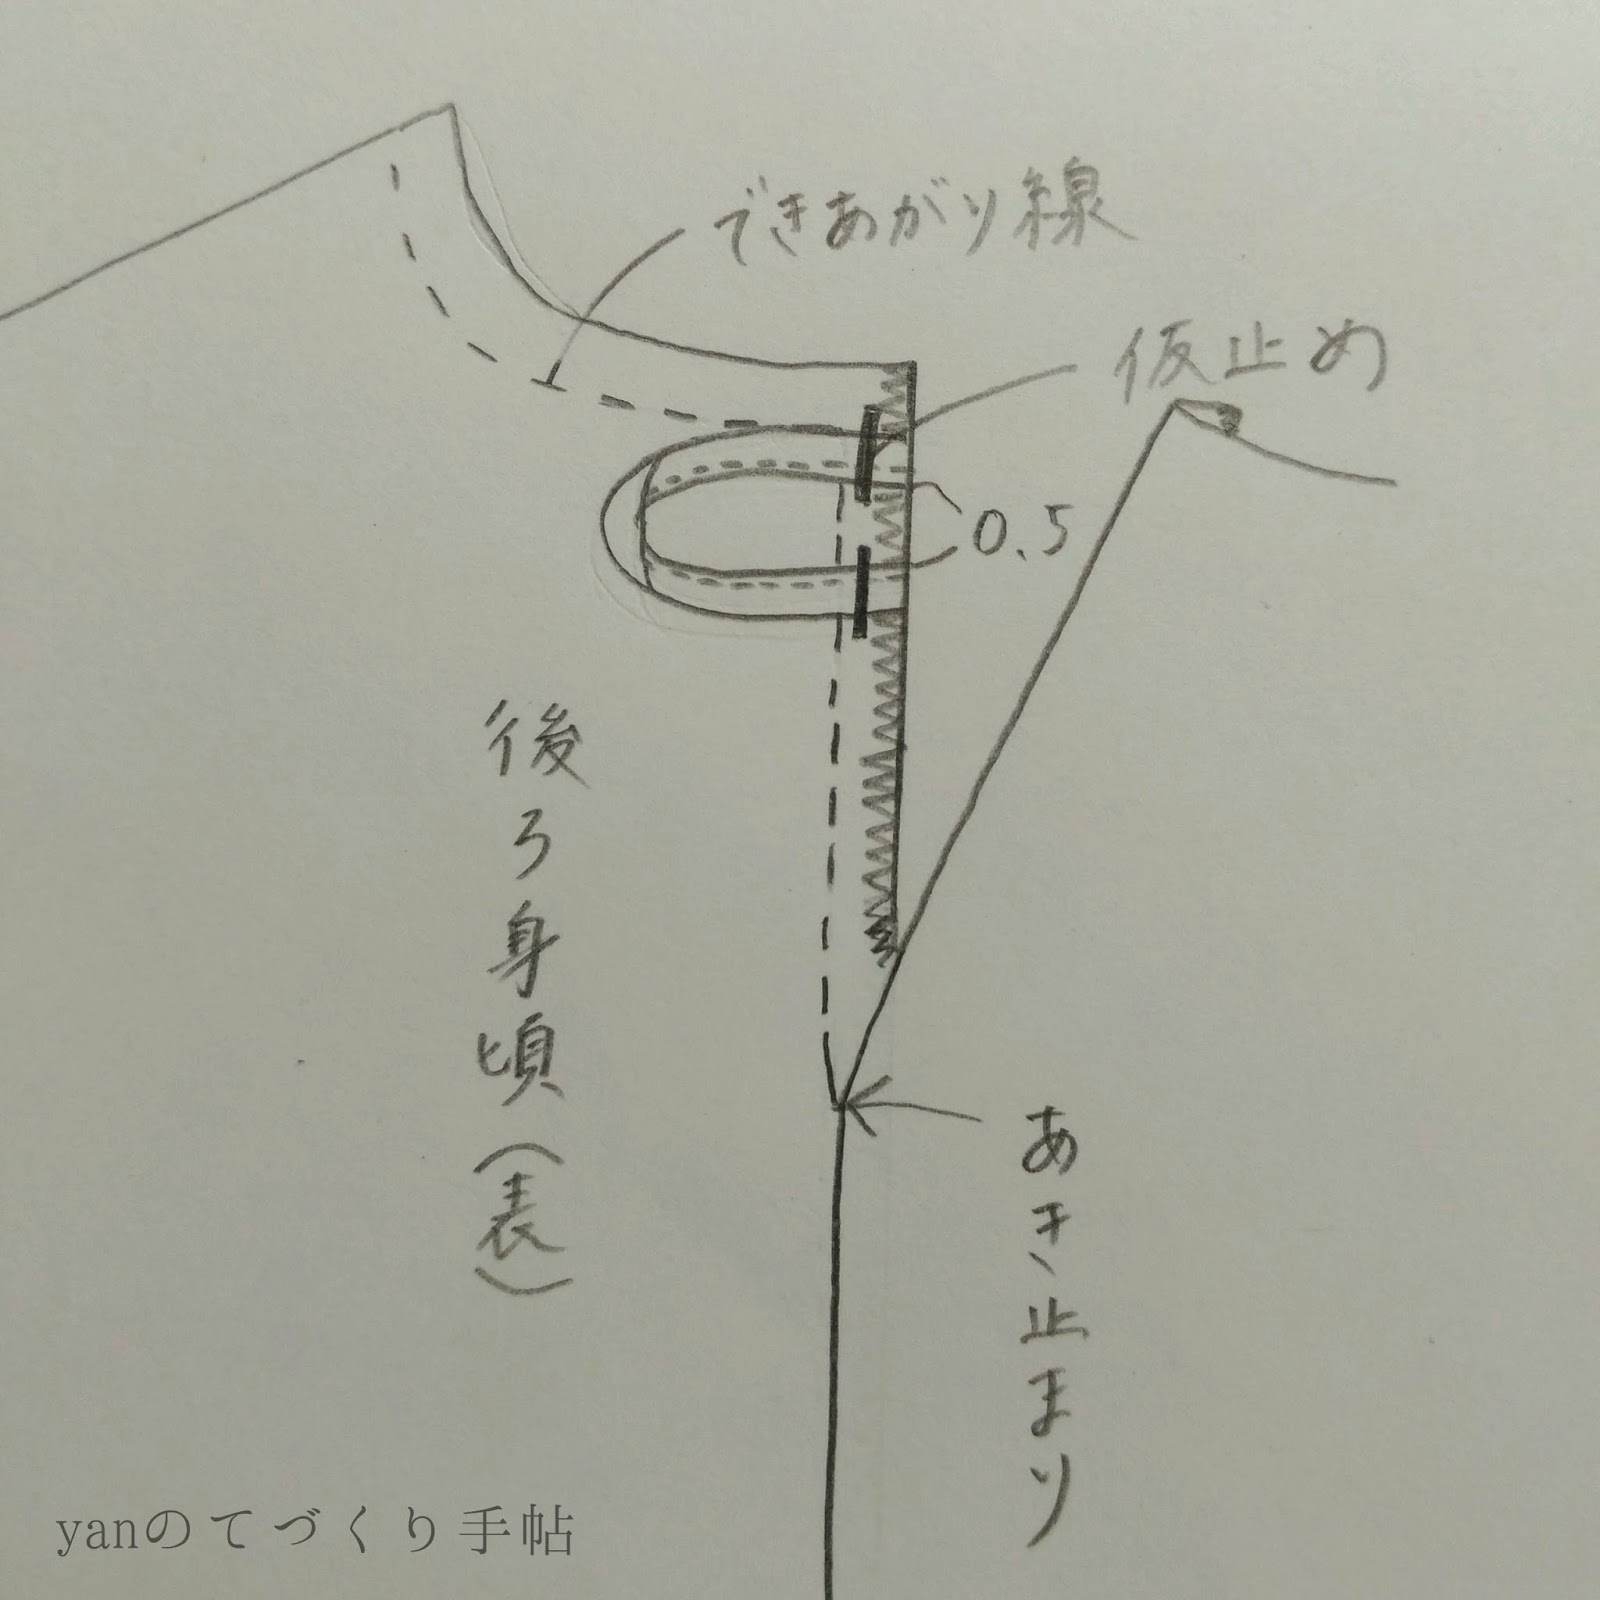 できあがり線
仮止め
0.5
後ろ身頃(表)
あき止まり
yanのてづくり手帖